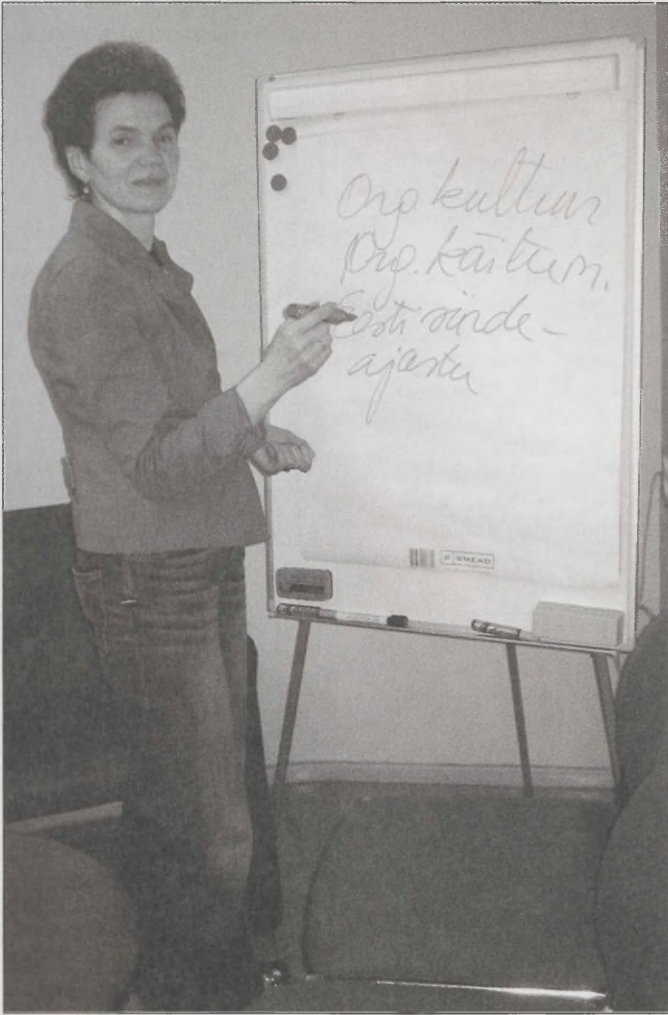 Org kultuur
Org. käitum.
Eesti siirde-
ajastu
SMEAD